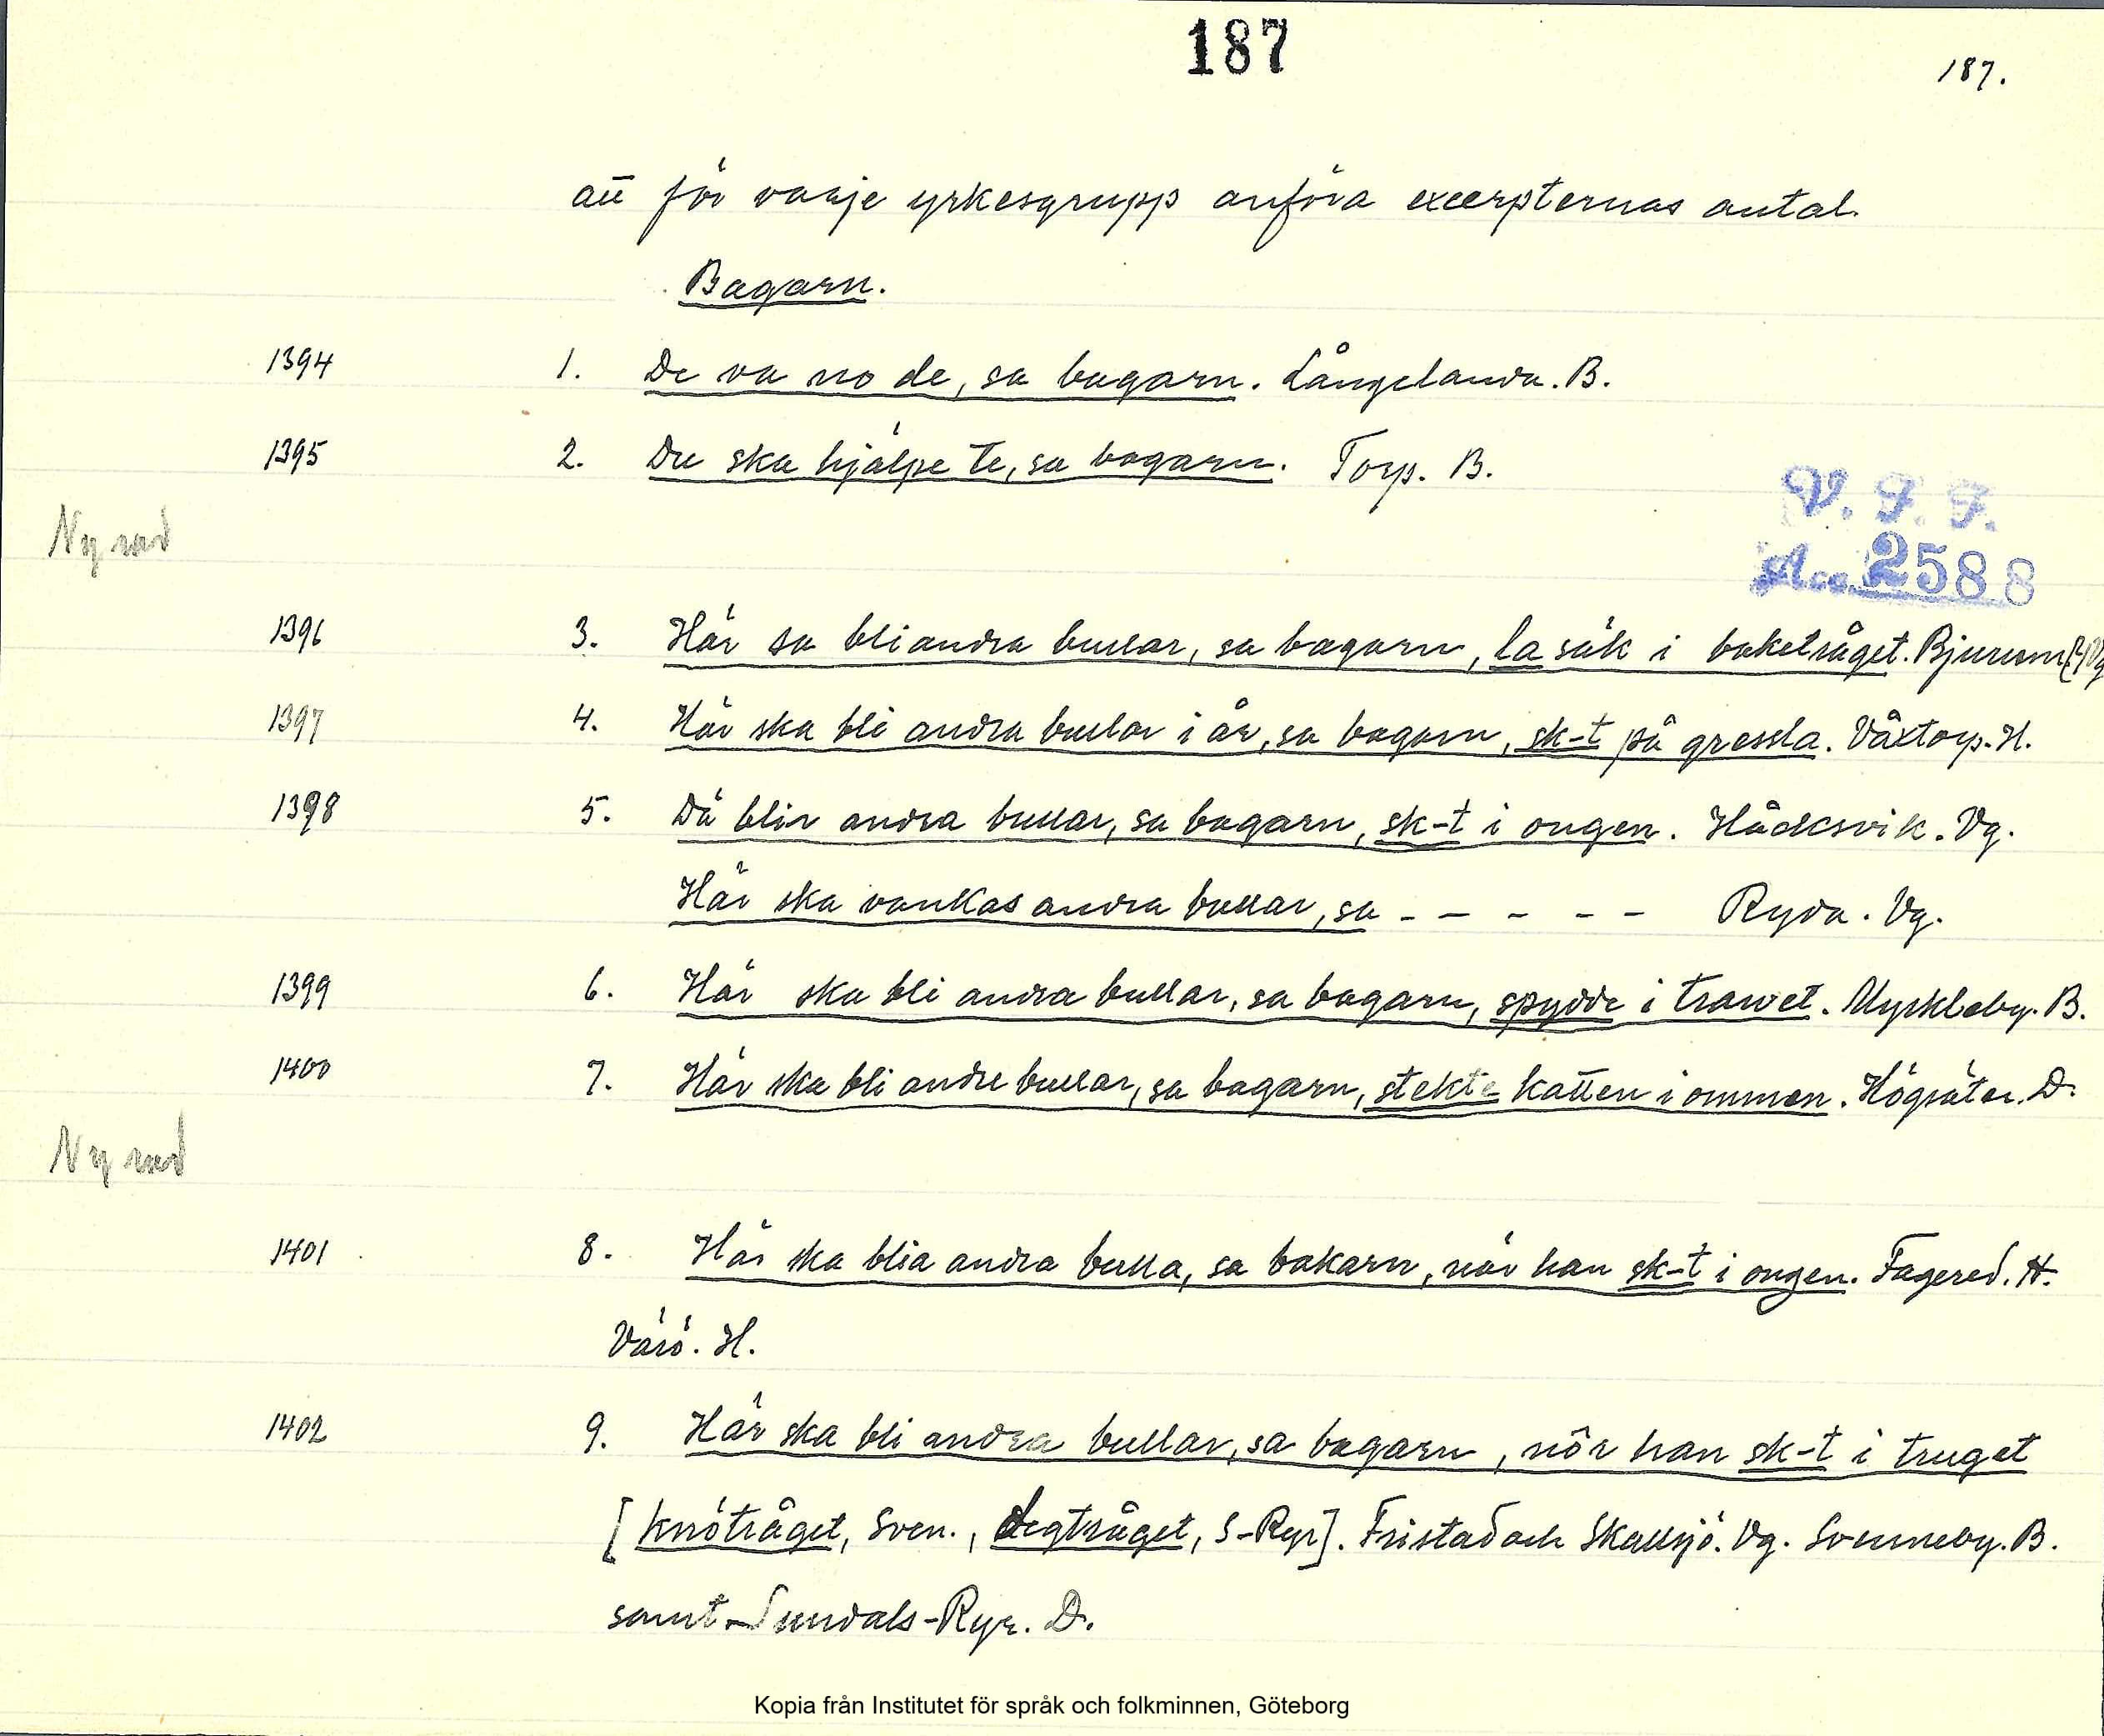 187
187.
att för varje yrkesgrupp anföra excerpternas antal.
Bagarn.
1394 1. De va no de, sa bagarn. Långelanda. B.
1395 2. Du ska hjälpe te, sa bagarn. Torp. B.
V. F. F.
Ny rad
Acc. 2588
1396 3. Här sa bli andra bullar, sa bagarn, la säk i baketråget. Bjurum Vg
1397 4. Här ska bli andra bullar i år, sa bagarn, sk-t på gressla. Våxtorp. H.
1398 5. Dä blir andra bullar, sa bagarn, sk-t i ongen. Håcksvik. Vg.
Här ska vankas andra bullar, sa - - - - - Ryda. Vg.
1399 6. Här ska bli andra bullar, sa bagarn, spydde i trawet. Myckleby. B.
1400 7. Här ska bli andre bullar, sa bagarn, stekte katten i ommen. Högsäter. D.
Ny rad
1401 8. Här ska blia andra bulla, sa bakarn, när han sk-t i ongen. Fagered. H.
Värö. H.
1402 9. Här ska bli andra bullar, sa bagarn, når han sk-t i truget
[knötråget, Sven., degtråget, S-Ryr]. Fristad och Skallsjö. Vg. Svenneby. B.
samt Sundals-Ryr. D.
Kopia från Institutet för språk och folkminnen, Göteborg